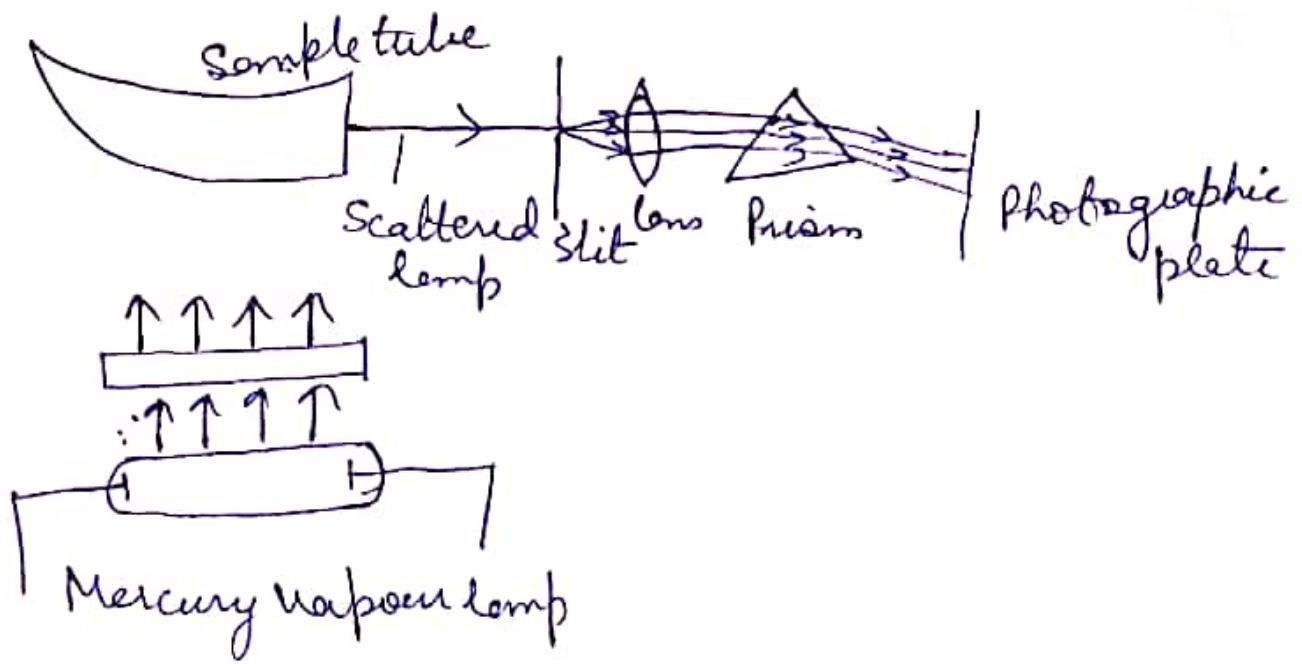 Sample tube
Scattered
lamp
Slit
lens
Prism
Photographic
plate
Mercury Vapour lamp